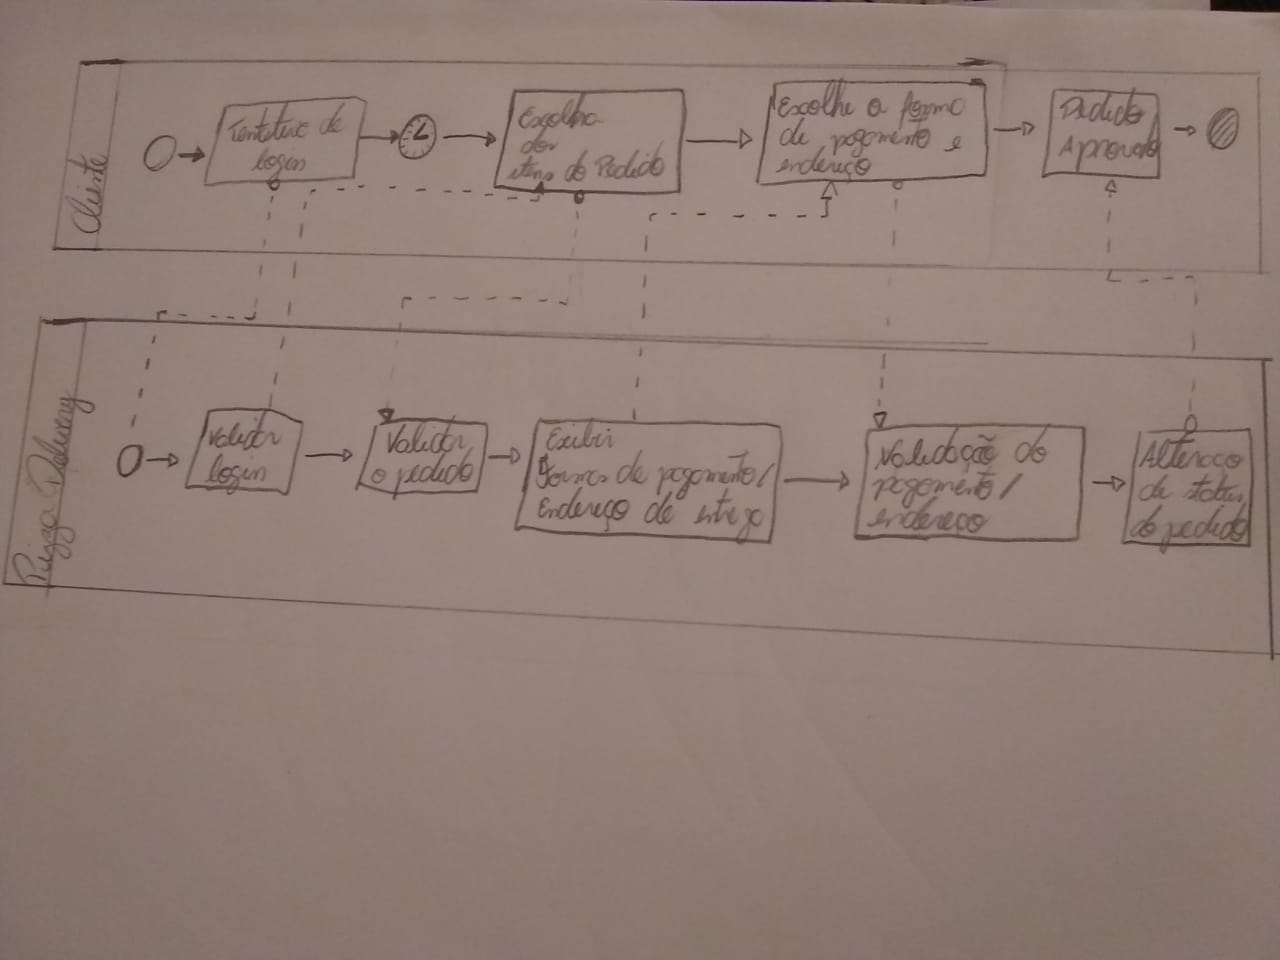 Cliente
Tentativa de
login
Escolha
dos
itens do Pedido
Escolhe a forma
de pagamento e
endereço
Pedido
Aprovado
Pizza Delivery
Validar
login
Validar
o pedido
Exibir
formas de pagamento/
Endereço de entrega
Validação do
pagamento/
endereço
Alteraço
de status
do pedido